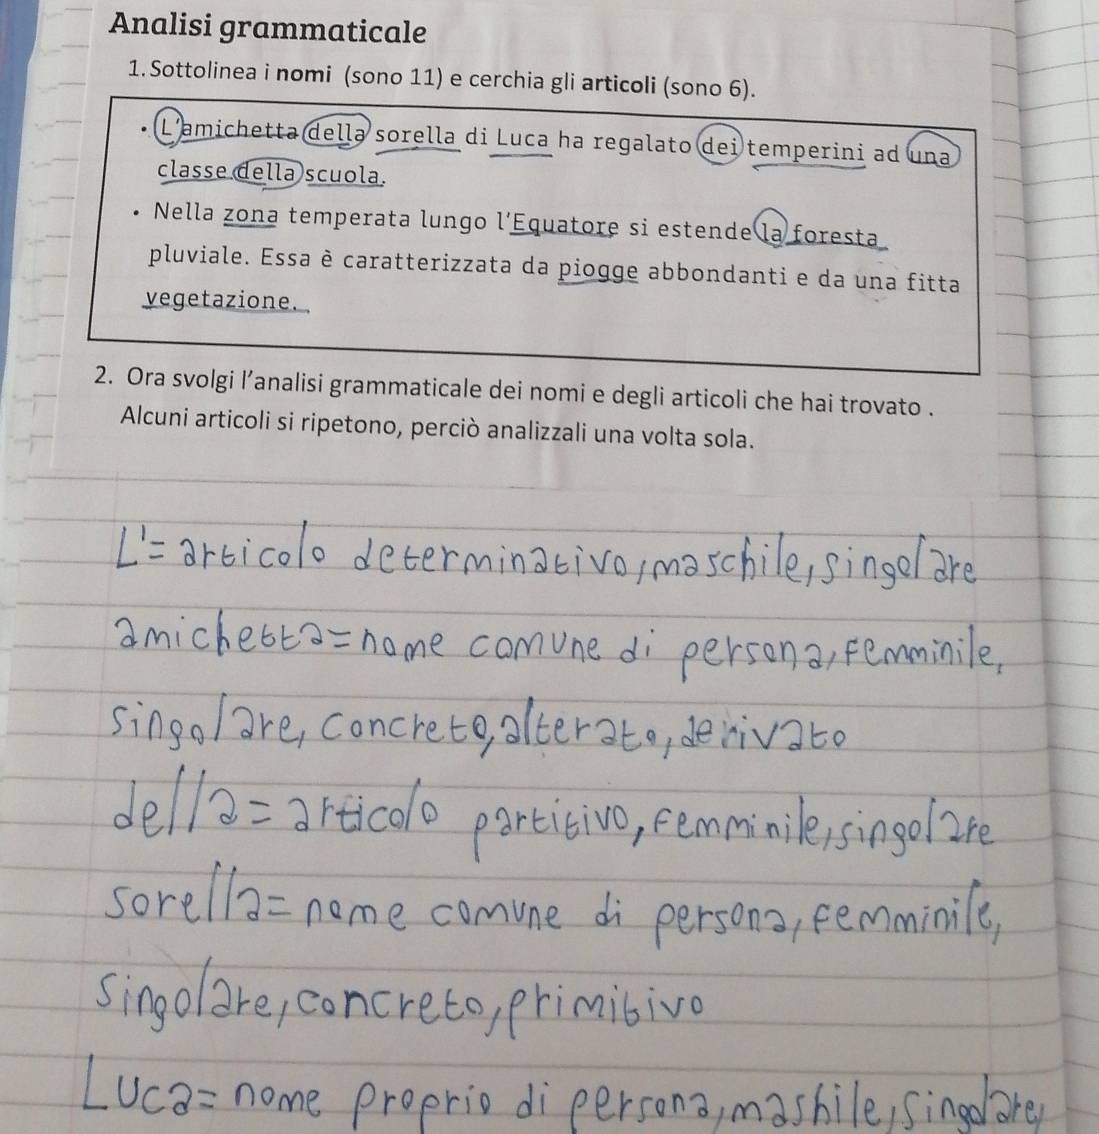 Analisi grammaticale
1. Sottolinea i nomi (sono 11) e cerchia gli articoli (sono 6).
• L'amichetta della sorella di Luca ha regalato dei temperini ad una
classe della scuola.
• Nella zona temperata lungo l'Equatore si estende la foresta
pluviale. Essa è caratterizzata da piogge abbondanti e da una fitta
vegetazione.
2. Ora svolgi l'analisi grammaticale dei nomi e degli articoli che hai trovato .
Alcuni articoli si ripetono, perciò analizzali una volta sola.
L'= articolo determinativo, maschile, singolare
amichetta= nome comune di persona, femminile,
singolare, concreto, alterato, derivato
della= articolo partitivo, femminile, singolare
sorella= nome comune di persona, femminile,
singolare, concreto, primitivo
Luca= nome proprio di persona, mashile, singolare,